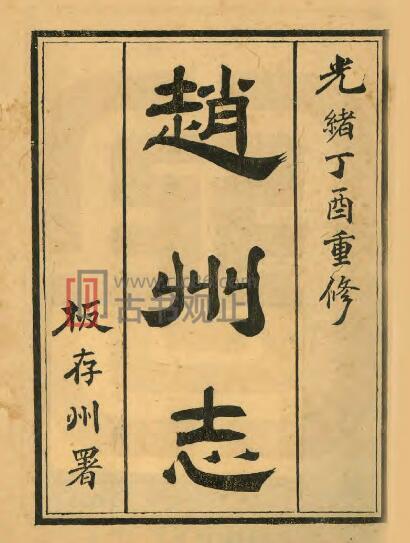 光緒丁酉重修
趙州志
板存州署
古书观止